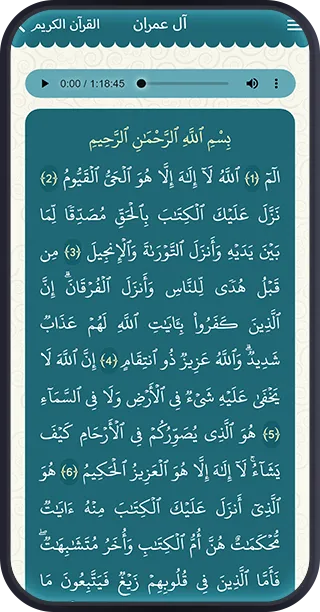 القرآن الكريم
آل عمران
0:00 / 1:18:45
بِسْمِ ٱللَّهِ ٱلرَّحْمَٰنِ ٱلرَّحِيمِ
الٓمٓ ﴿1﴾ ٱللَّهُ لَآ إِلَٰهَ إِلَّا هُوَ ٱلْحَىُّ ٱلْقَيُّومُ ﴿2﴾
نَزَّلَ عَلَيْكَ ٱلْكِتَٰبَ بِٱلْحَقِّ مُصَدِّقًا لِّمَا
بَيْنَ يَدَيْهِ وَأَنزَلَ ٱلتَّوْرَىٰةَ وَٱلْإِنجِيلَ ﴿3﴾ مِن
قَبْلُ هُدًى لِّلنَّاسِ وَأَنزَلَ ٱلْفُرْقَانَ ۗ إِنَّ
ٱلَّذِينَ كَفَرُوا۟ بِـَٔايَٰتِ ٱللَّهِ لَهُمْ عَذَابٌ
شَدِيدٌ ۗ وَٱللَّهُ عَزِيزٌ ذُو ٱنتِقَامٍ ﴿4﴾ إِنَّ ٱللَّهَ لَا
يَخْفَىٰ عَلَيْهِ شَىْءٌ فِى ٱلْأَرْضِ وَلَا فِى ٱلسَّمَآءِ
﴿5﴾ هُوَ ٱلَّذِى يُصَوِّرُكُمْ فِى ٱلْأَرْحَامِ كَيْفَ
يَشَآءُ ۚ لَآ إِلَٰهَ إِلَّا هُوَ ٱلْعَزِيزُ ٱلْحَكِيمُ ﴿6﴾ هُوَ
ٱلَّذِىٓ أَنزَلَ عَلَيْكَ ٱلْكِتَٰبَ مِنْهُ ءَايَٰتٌ
مُّحْكَمَٰتٌ هُنَّ أُمُّ ٱلْكِتَٰبِ وَأُخَرُ مُتَشَٰبِهَٰتٌ ۖ
فَأَمَّا ٱلَّذِينَ فِى قُلُوبِهِمْ زَيْغٌ فَيَتَّبِعُونَ مَا